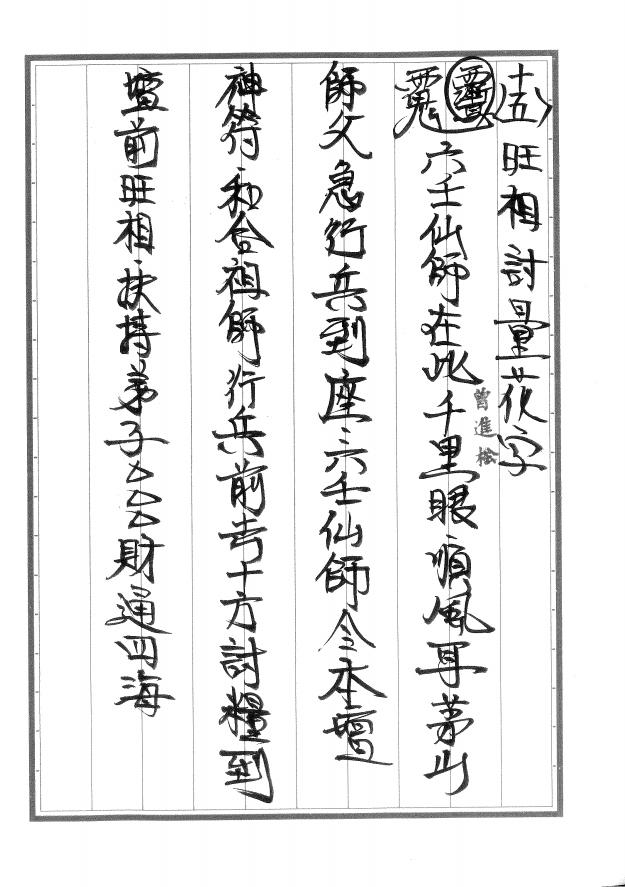 (十五) 旺相討量花字
六壬仙師在此千里眼順風耳茅山
曾進松
師父急行兵到座六壬仙師令本壇
神符和合祖師行兵前去十方討糧到
壇前旺相扶持弟子厶厶厶財通四海